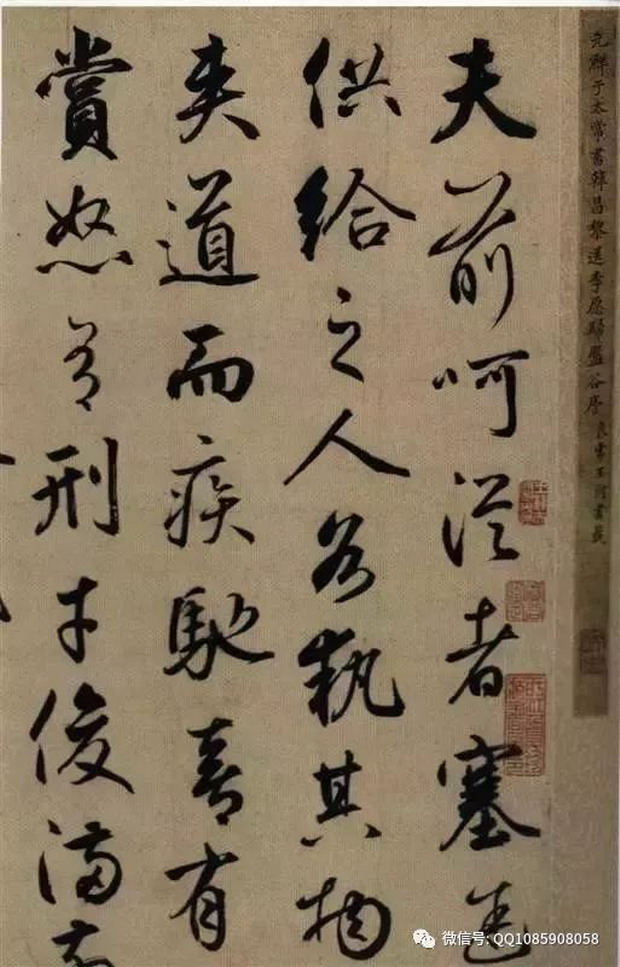 元鮮于太常書韓昌黎送李愿歸盤谷序 良常王澍書籤
夫前呵從者塞途
供給之人各執其物
夾道而疾馳喜有
賞怒有刑才俊滿
微信号: QQ1085908058